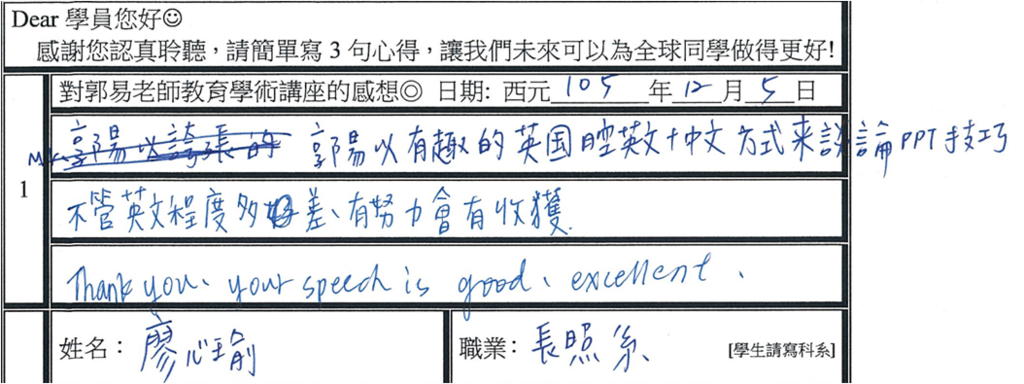 Dear 學員您好☺
感謝您認真聆聽，請簡單寫 3 句心得，讓我們未來可以為全球同學做得更好!
1
對郭易老師教育學術講座的感想◎ 日期: 西元 105 年 12 月 5 日
郭陽以有趣的英国腔英文十中文方式来談論PPT技巧
不管英文程度多差、有努力會有收獲.
Thank you、your speech is good、excellent.
姓名： 廖心瑜 職業： 長照系 [學生請寫科系]